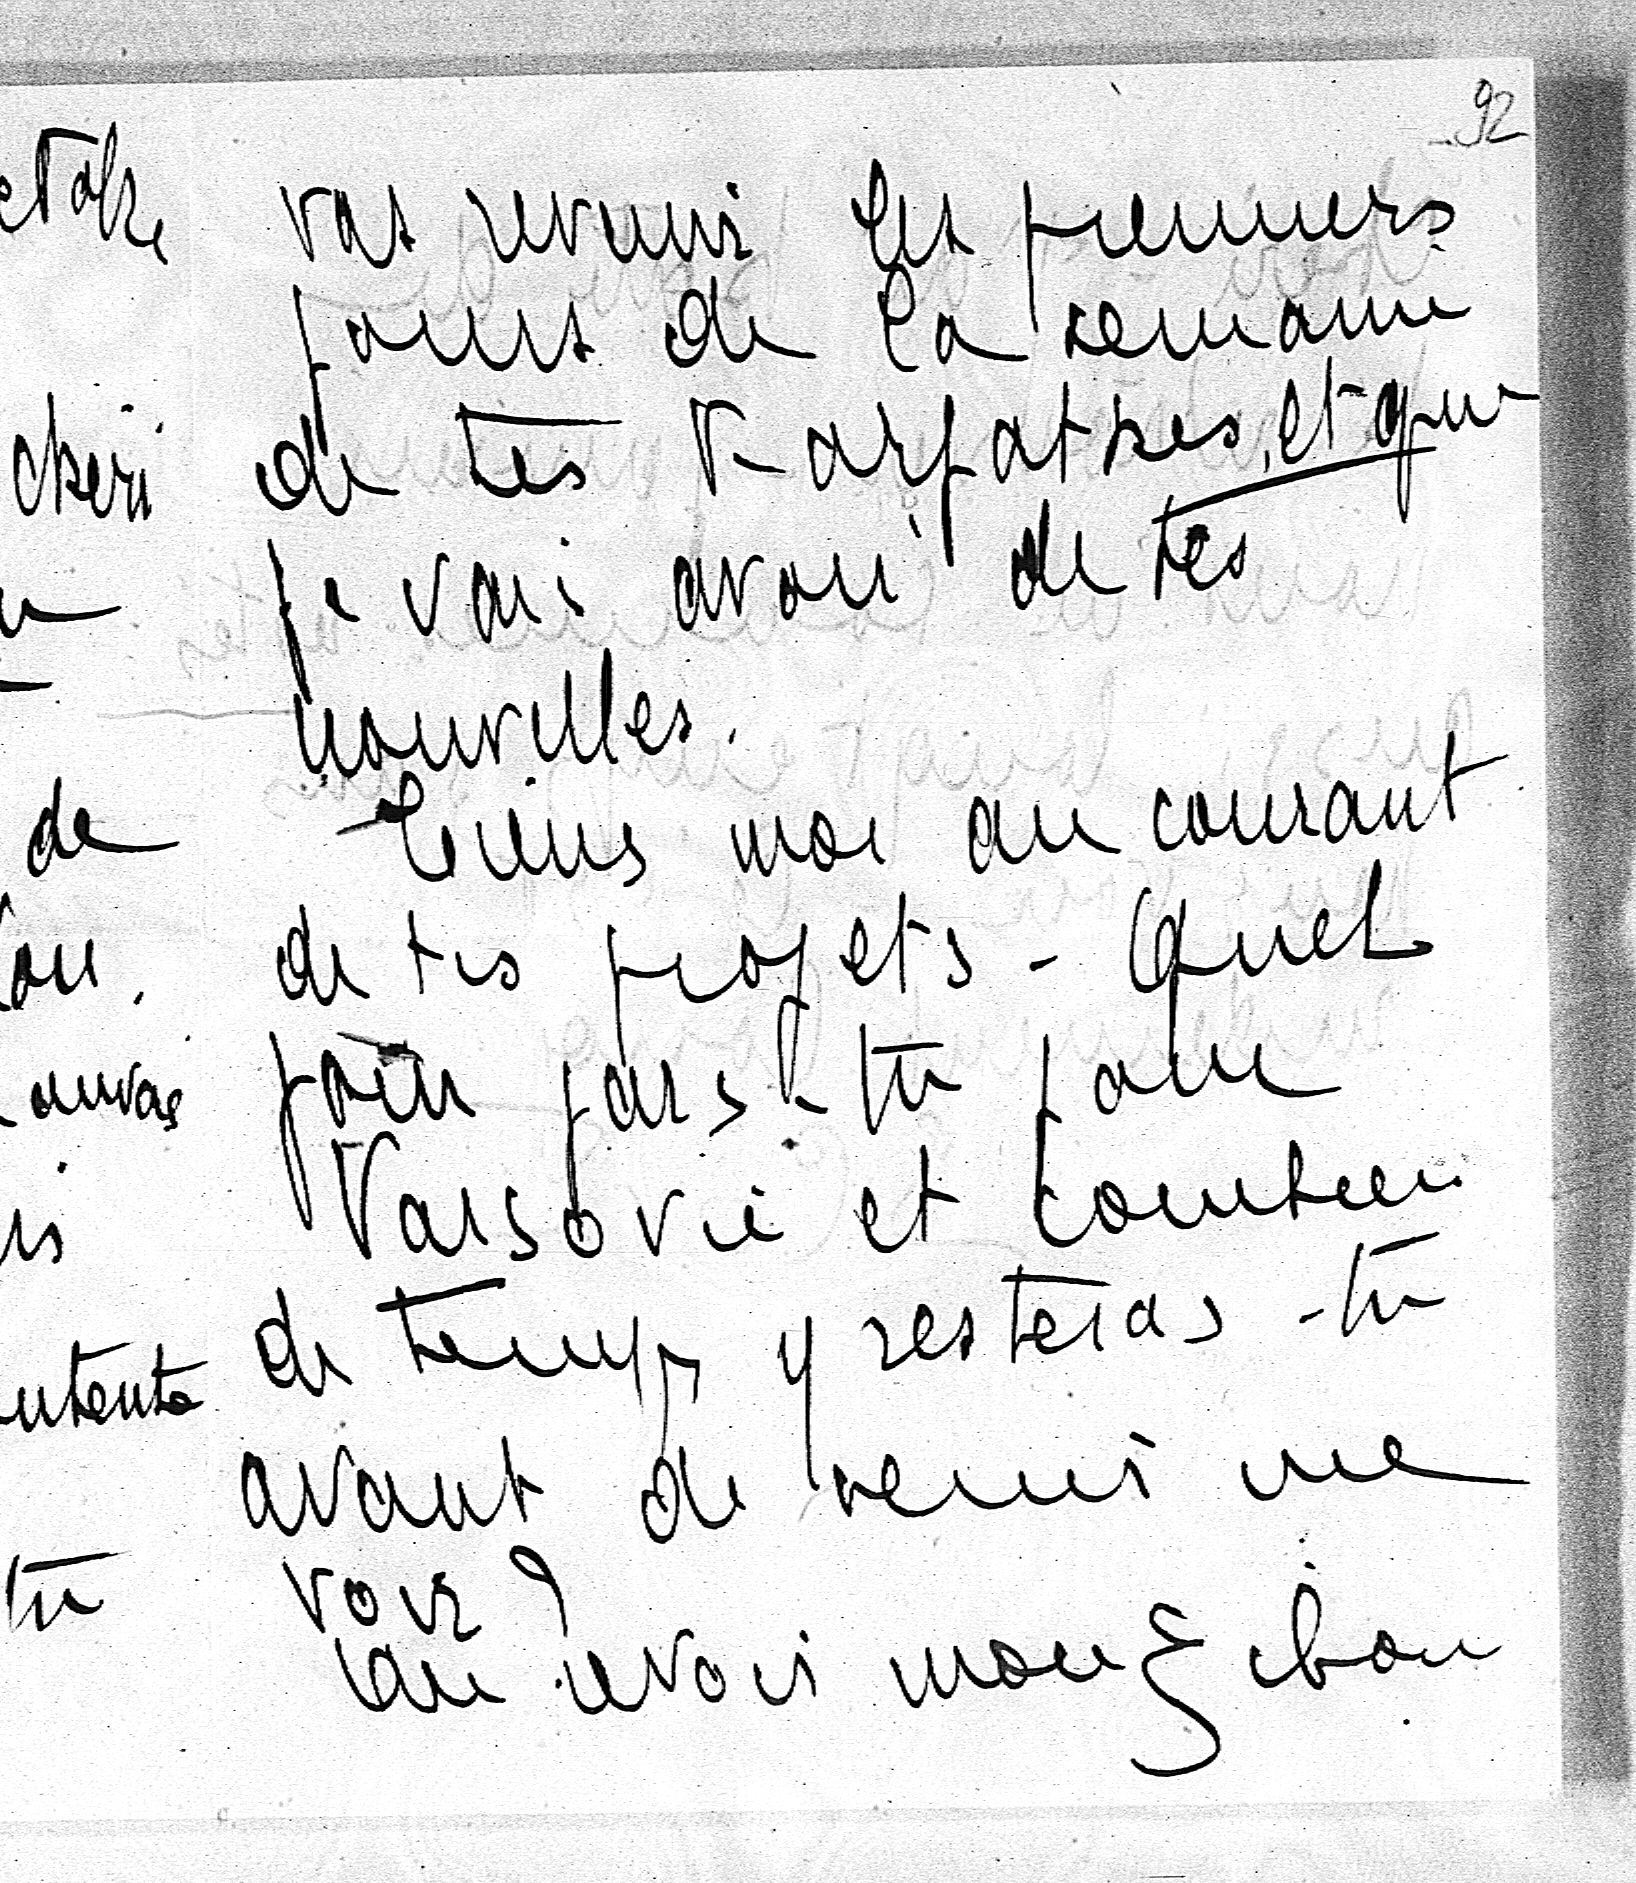 92
vas revenir les premiers
jours de la semaine
de tes Karpathes, et que
je vais avoir de tes
nouvelles.
Tiens moi au courant
de tes projets - Quel
jour pars-tu pour
Varsovie et combien
de temps y resteras-tu
avant de venir me
voir ?
Au revoir mon
chéri
de
tu